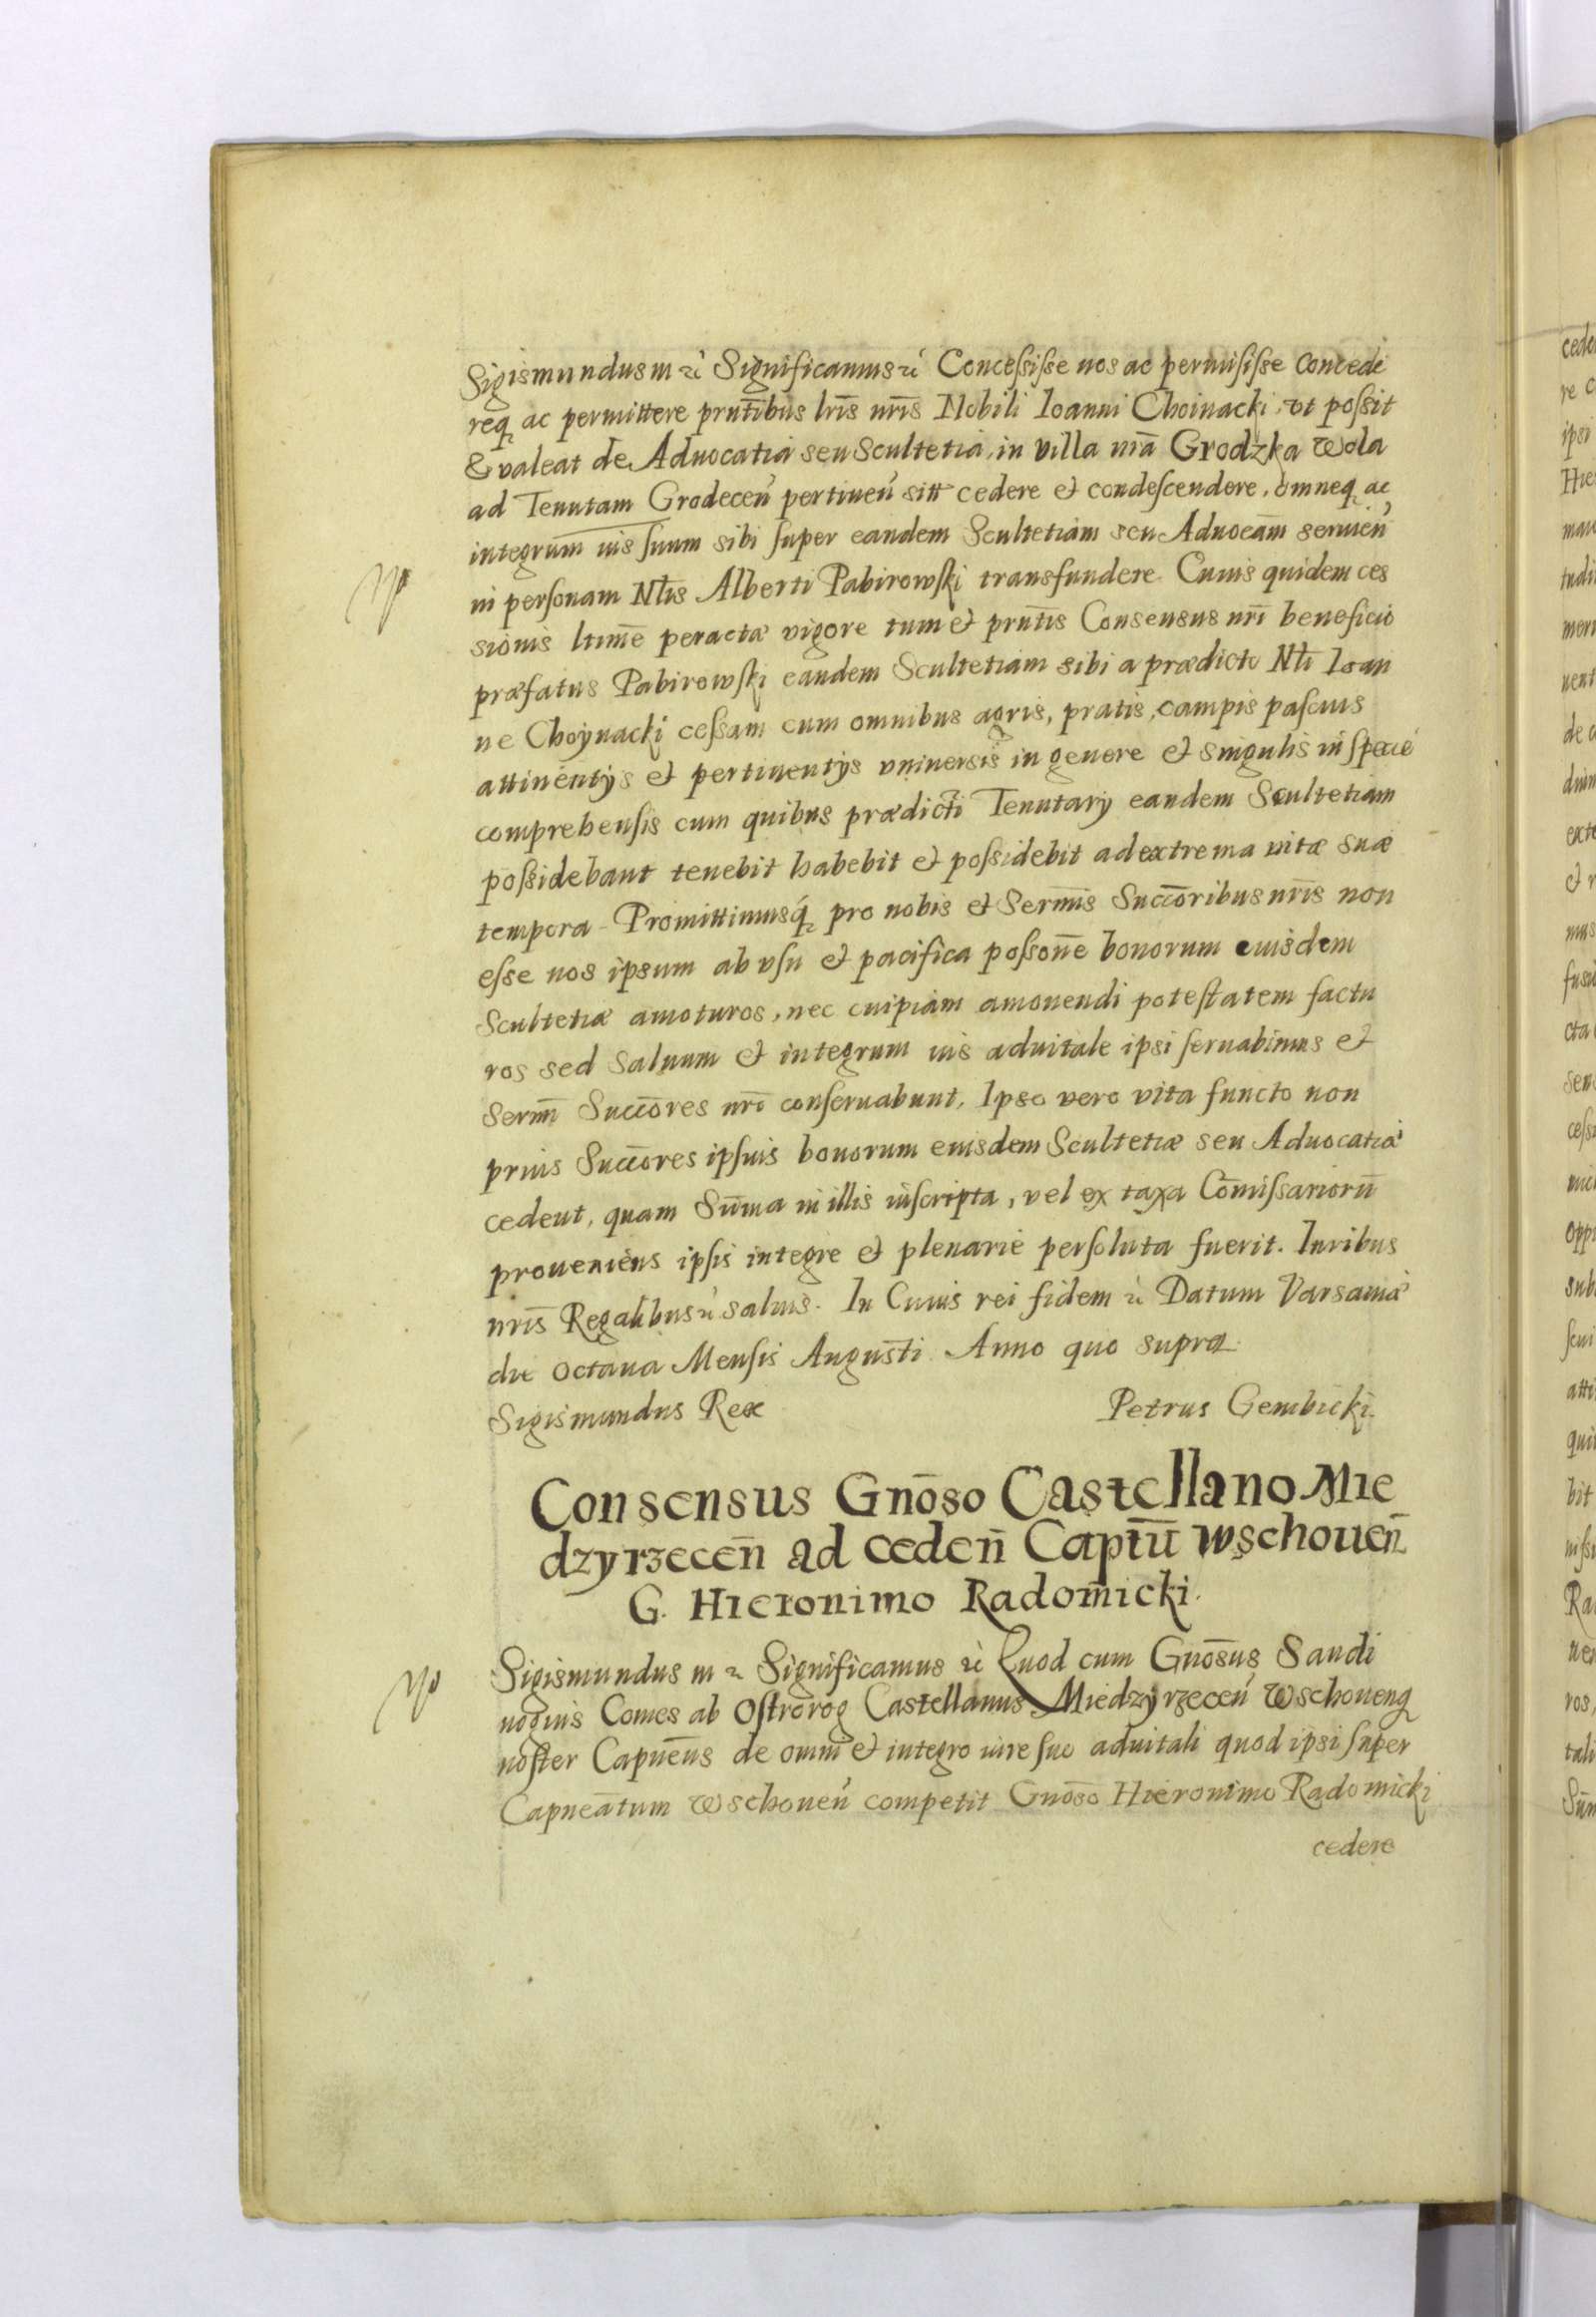 Sigismundus III etc̀ Significamus etc̀ Concessisse nos ac permisisse concede
req̨ ac permittere prnt̄ibus lrīs nrīs Nobili Ioanni Choinacki, vt possit
& valeat de Aduocatia seu Scultetia, in villa nrā Grodzka Wola
ad Tenutam Grodeceń pertineń sitt cedere et condescendere, omneq̨ ac
integrum̄ ius suum sibi super eandem Scultetiam seu Aduocām seruień
in personam Nłis Alberti Pabirowski transfundere. Cuius quidem ces
sionis ltimē peractæ vigore tum et prntīs Consensus nrī beneficio
præfatus Pabirowski eandem Scultetiam sibi a prædicto Nłi Ioan
ne Choynacki cessam cum omnibus agris, pratis, campis pascuis
attinentijs et pertinentijs vniuersis in genere et singulis in specie
comprehensis cum quibus prædicti Tenutarij eandem Scultetiam
possidebant tenebit habebit et possidebit ad extrema vitæ suæ
tempora. Promittimusq́ pro nobis et Sermīs Succōribus nrīs non
esse nos ipsum ab vsu et pacifica possonē bonorum eiusdem
Scultetiæ amoturos, nec cuipiam amouendi potestatem factu
ros sed saluum et integrum ius aduitale ipsi seruabimus et
Sermī Succōres nrī conseruabunt. Ipso vero vita functo non
prius Succōres ipsius bonorum eiusdem Scultetiæ seu Aduocatiæ
cedent, quam Sum̄a in illis inscripta, vel ex taxa Com̄issariorū
proueniens ipsis integre et plenarie persoluta fuerit. Iuribus
nrīs Regalibus etc̀ saluis. In Cuius rei fidem etc̀ Datum Varsauiæ
die octaua Mensis Augusti Anno quo supra
Sigismundus Rex Petrus Gembicki.
Consensus Gnōso Castellano Mie
dzyrzeceñ ad cedeñ Captū Wschoueñ
G. Hieronimo Radomicki.
Sigismundus III etc Significamus etc̀ Quod cum Gnōsus Sandi
uogius Comes ab Ostrorog Castellanus Miedzyrzeceń Wschouenq̨
noster Capnēus de omni et integro iure suo aduitali quod ipsi super
Capneātum Wschoueń competit Gnōso Hieronimo Radomicki
cedere